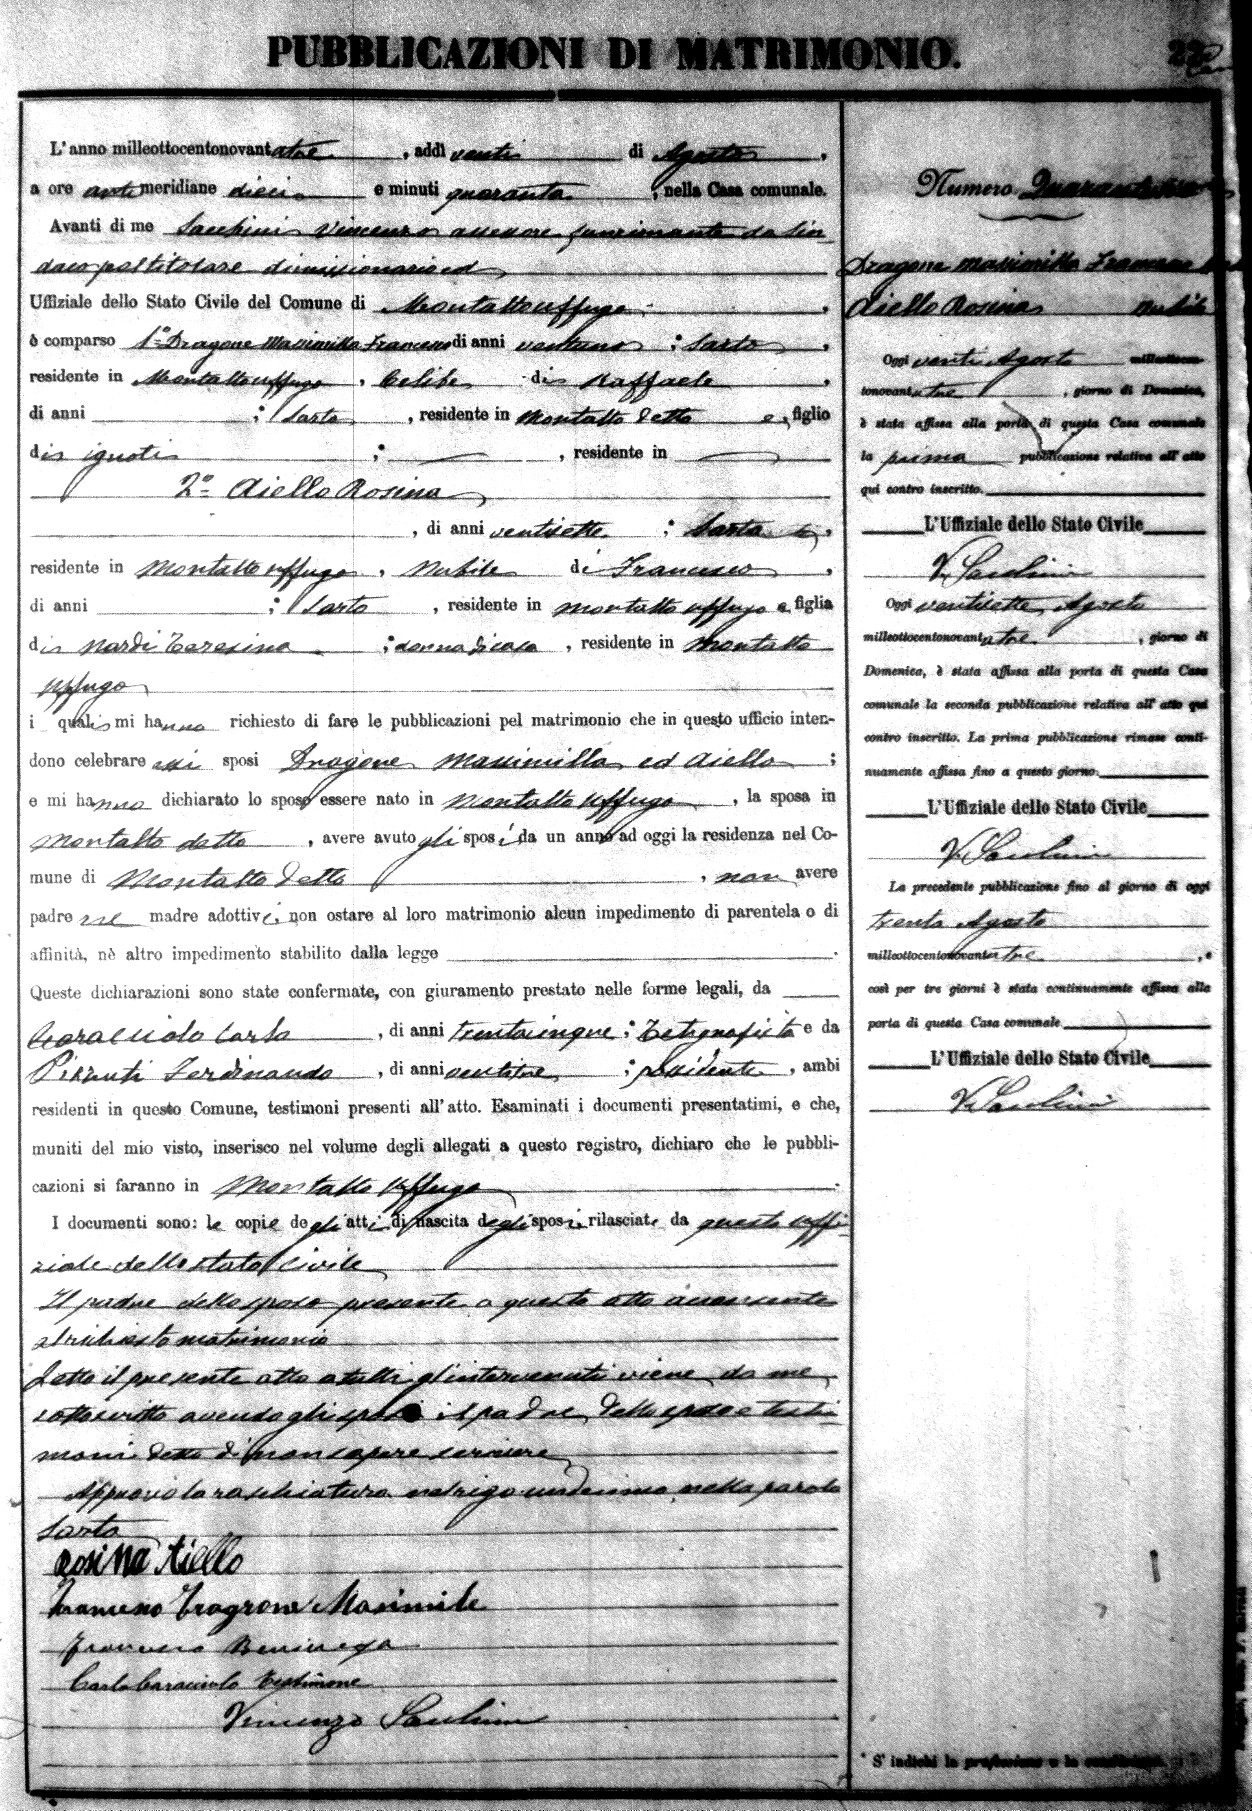 PUBBLICAZIONI DI MATRIMONIO.
L'anno milleottocentonovantatre, addì venti di Agosto,
a ore antimeridiane dieci e minuti quaranta, nella Casa comunale.
Avanti di me Vincenzo assessore funzionante da Sin-
daco pel titolare dimissionario ed
Uffiziale dello Stato Civile del Comune di Montalto Uffugo,
è comparso 1º Dragone Massimilla Francesco di anni ventuno; Sarto,
residente in Montalto Uffugo, Celibe di Raffaele,
di anni ; Sarto, residente in Montalto detto e, figlio
di ignoti ; , residente in
2º Aiello Rosina
, di anni ventisette; Sarta,
residente in Montalto Uffugo, Nubile di Francesco,
di anni ; Sarto, residente in Montalto Uffugo e figlia
di Nardi Teresina; donna di casa, residente in Montalto
Uffugo
i quali mi hanno richiesto di fare le pubblicazioni pel matrimonio che in questo ufficio inten-
dono celebrare essi sposi Dragone Massimilla ed Aiello;
e mi hanno dichiarato lo sposo essere nato in Montalto Uffugo, la sposa in
Montalto detto, avere avuto gli sposi da un anno ad oggi la residenza nel Co-
mune di Montalto detto, non avere
padre ne madre adottivi, non ostare al loro matrimonio alcun impedimento di parentela o di
affinità, nè altro impedimento stabilito dalla legge.
Queste dichiarazioni sono state confermate, con giuramento prestato nelle forme legali, da
Caracciolo Carlo, di anni trentacinque; e da
Ferdinando, di anni ventitre; possidente, ambi
residenti in questo Comune, testimoni presenti all'atto. Esaminati i documenti presentatimi, e che,
muniti del mio visto, inserisco nel volume degli allegati a questo registro, dichiaro che le pubbli-
cazioni si faranno in Montalto Uffugo.
I documenti sono: le copie degli atti di nascita degli sposi rilasciate da questo Uffi-
ziale dello stato Civile
Il padre dello sposo presente a questo atto acconsente
al richiesto matrimonio
Letto il presente atto a tutti gl'intervenuti viene da me
sottoscritto avendo gli sposi il padre dello sposo e testi
moni detto di non sapere scrivere
Approvo la raschiatura nel rigo undecimo nella parola
Sarta
Rosina Aiello
Francesco Dragone Masimile
Francesco
Carlo Caracciolo testimone
Vincenzo
Numero
Dragone Massimilla Francesco
Aiello Rosina Nubile
Oggi venti Agosto milleottocen-
tonovantatre, giorno di Domenica,
è stata affissa alla porta di questa Casa comunale
la prima pubblicazione relativa all'atto
qui contro inscritto.
L'Uffiziale dello Stato Civile
V.
Oggi ventisette Agosto
milleottocentonovantatre, giorno di
Domenica, è stata affissa alla porta di questa Casa
comunale la seconda pubblicazione relativa all'atto qui
contro inscritto. La prima pubblicazione rimase conti-
nuamente affissa fino a questo giorno.
L'Uffiziale dello Stato Civile
V.
La precedente pubblicazione fino al giorno di oggi
trenta Agosto
milleottocentonovantatre, e
così per tre giorni è stata continuamente affissa alla
porta di questa Casa comunale
L'Uffiziale dello Stato Civile
V.
* S'indichi la professione o la condizione.